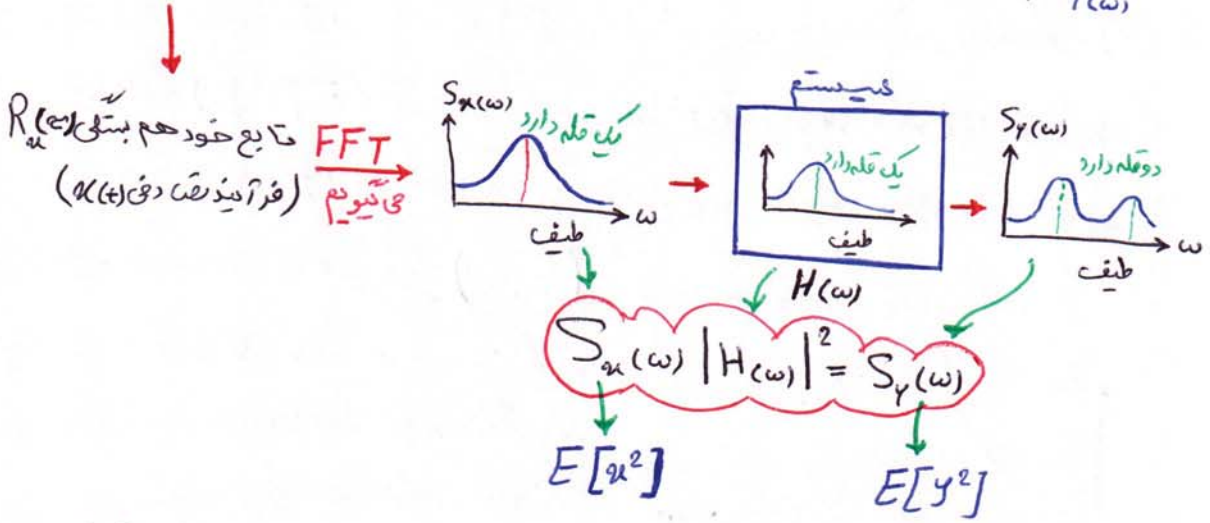 Y(ω)
تابع خود هم بستگی Rx(τ)
(فرآیند تصادفی x(t))
FFT
می گیریم
Sx(ω)
یک قله دارد
ω
طیف
سیستم
یک قله دارد
طیف
H(ω)
Sy(ω)
دو قله دارد
ω
طیف
Sx(ω) |H(ω)|² = Sy(ω)
E[x²]
E[y²]